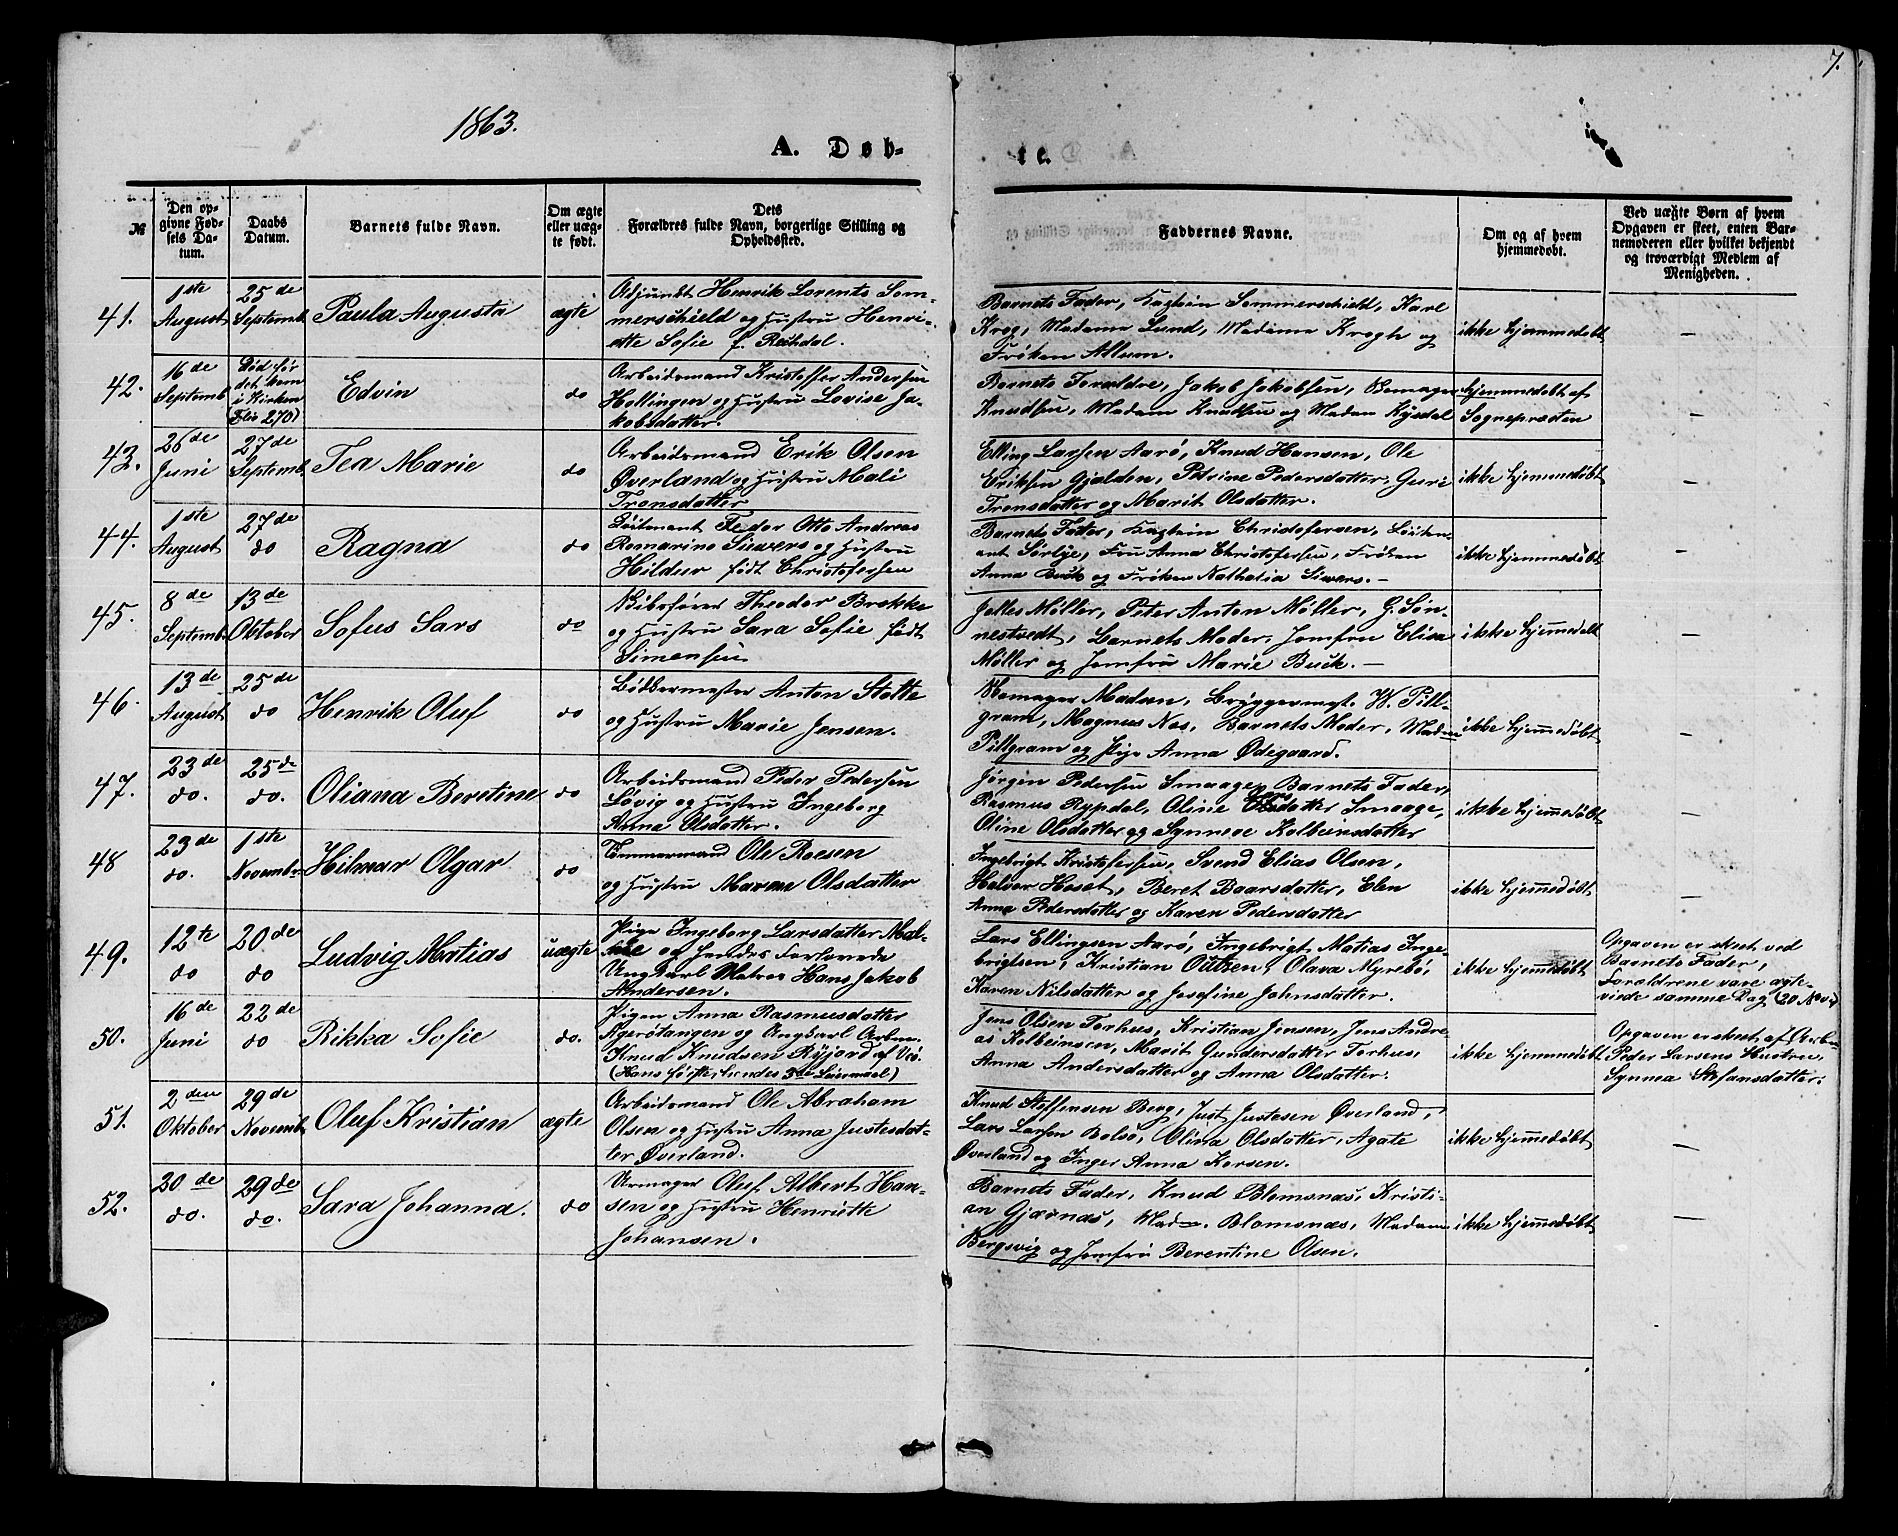 7.
1863.
A. Døb-
te.
№
Den op-
givne Fød-
sels Da-
tum.
Daabs
Datum.
Barnets fulde Navn.
Om ægte
eller uæg-
te født.
Dets
Forældres fulde Navn, borgerlige Stilling og
Opholdssted.
Faddernes Navne.
Om og af hvem
hjemmedøbt.
Ved uægte Børn af hvem
Opgaven er skeet, enten Bar-
nemoderen eller hvilket bekjendt
og troværdigt Medlem af
Menigheden.
41.
1ste
August
25de
Septemb.
Paula Augusta
ægte
Adjunkt Henrik Lorents Som-
merschield og Hustru Henri-
ette Sofie f.
Barnets Fader, Kaptein Sommerschield, Karl
Krog, Madame Lund, Madame Krogh og
Frøken Allum.
ikke hjemmedøbt
—
42.
16de
Septemb.
Død før
det kom
i Kirken
(Lis 270)
Edvin
do
Arbeidsmand Kristoffer Andersen
Hollingen og Hustru Lovise Ja-
kobsdatter.
Barnets Forældre, Jakob Jakobsen,
Knudsen, Madam Knudsen og Madam
hjemmedøbt af
Sognepræsten
—
43.
26de
Juni
27de
Septemb.
Tea Marie
do
Arbeidsmand Erik Olsen
Øverland og Hustru Mali
Tronsdatter
Elling Larsen Aarø, Knud Hansen, Ole
Eriksen Gjalden, Petrine Pedersdatter, Guri
Tronsdatter og Marit Olsdatter.
ikke hjemmedøbt
—
44.
1ste
August
27de
do
Ragna
do
Løitnant Fedor Otto Andreas
Romarino Siewers og Hustru
Hildur født Christofersen
Barnets Fader, Kaptein Christofersen, Løiten-
ant Sørlye, Fru Anna Christofersen, Frøken
Anna Buck og Frøken Nathalia Siwers. —
ikke hjemmedøbt
—
45.
8de
Septemb.
13de
Oktober
Sofus Sars
do
Skibsfører Theodor Brekke
og Hustru Sara Sofie født
Simensen
Jelles Møller, Peter Anton Møller, G. Søn-
nestvedt, Barnets Moder, Jomfru Elisa
Møller og Jomfru Marie Buck. —
ikke hjemmedøbt
—
46.
13de
August
25de
do
Henrik Oluf
do
Bødkermester Anton Stolte
og Hustru Marie Jensen.
Madsen, Bryggermest. W. Pill-
gram, Magnus Nos, Barnets Moder, Madme
Pillgram og Pige Anna Ødegaard.
ikke hjemmedøbt
—
47.
23de
do.
25de
do.
Oliana Beretine
do
Arbeidsmand Peder Pedersen
Løvig og Hustru Ingeborg
Anna Olsdatter.
Jørgen Pedersen Smaage, Barnets Fader,
Rasmus Rypdal, Oline Smaage,
Oline Olsdatter og Synneve Kolbensdatter
ikke hjemmedøbt
—
48
23de
do.
1ste
Novembr
Hilmar Olgar
do
Tømmermand Ole Roesen
og Hustru Maren Olsdatter
Ingebrigt Kristofersen, Svend Elias Olsen,
Halvor Hoset, Beret Baarsdatter, Elen
Anna Pedersdatter og Karen Pedersdatter
ikke hjemmedøbt
—
49.
12te
do
20de
do
Ludvig Matias
uægte
Pige Ingeborg Larsdatter
og hendes Forlovede
Ungkarl Matros Hans Jakob
Andersen.
Lars Ellingsen Aarø, Ingebrigt Matias Inge-
brigtsen, Kristian Outzen, Olava Myrebø,
Karen Nilsdatter og Josefine Johnsdatter.
ikke hjemmedøbt
Opgaven er skeet ved
Barnets Fader,
Forældrene vare ægte-
viede samme Dag (20 Nov.)
50.
16de
Juni
22de
do
Rikka Sofie
do.
Pigen Anna Rasmusdatter
Agerøtangen og Ungkarl Arbm.
Knud Knudsen Ryjord af Veø.
(Hans første hendes 3die Leiermaal)
Jens Olsen Torhus, Kristian Jensen, Jens Andre-
as Kolbeinsen, Marit Gundersdatter Torhus,
Anna Andersdatter og Anna Olsdatter.
ikke hjemmedøbt
Opgaven er skeet af Arbm
Peder Larsens Hustru,
Synnea Stefansdatter.
51.
2den
Oktober
29de
Novemb.
Oluf Kristian
ægte
Arbeidsmand Ole Abraham
Olsen og Hustru Anna Justesdat-
ter Øverland.
Knud Steffensen Berg, Just Justesen Øverland,
Lars Larsen Bolsø, Olina Olsdatter, Agate
Øverland og Inger Anna Korsen.
ikke hjemmedøbt
—
52.
20de
do.
29de
do.
Sara Johanna.
do
Urmager Oluf Albert Han-
sen og Hustru Henriette
Johansen.
Barnets Fader, Knud Blomsnæs, Kristi-
an Gjærnæs, Madme. Blomsnæs, Madam
Bergsvig og Jomfru Berentine Olsen.
ikke hjemmedøbt
—